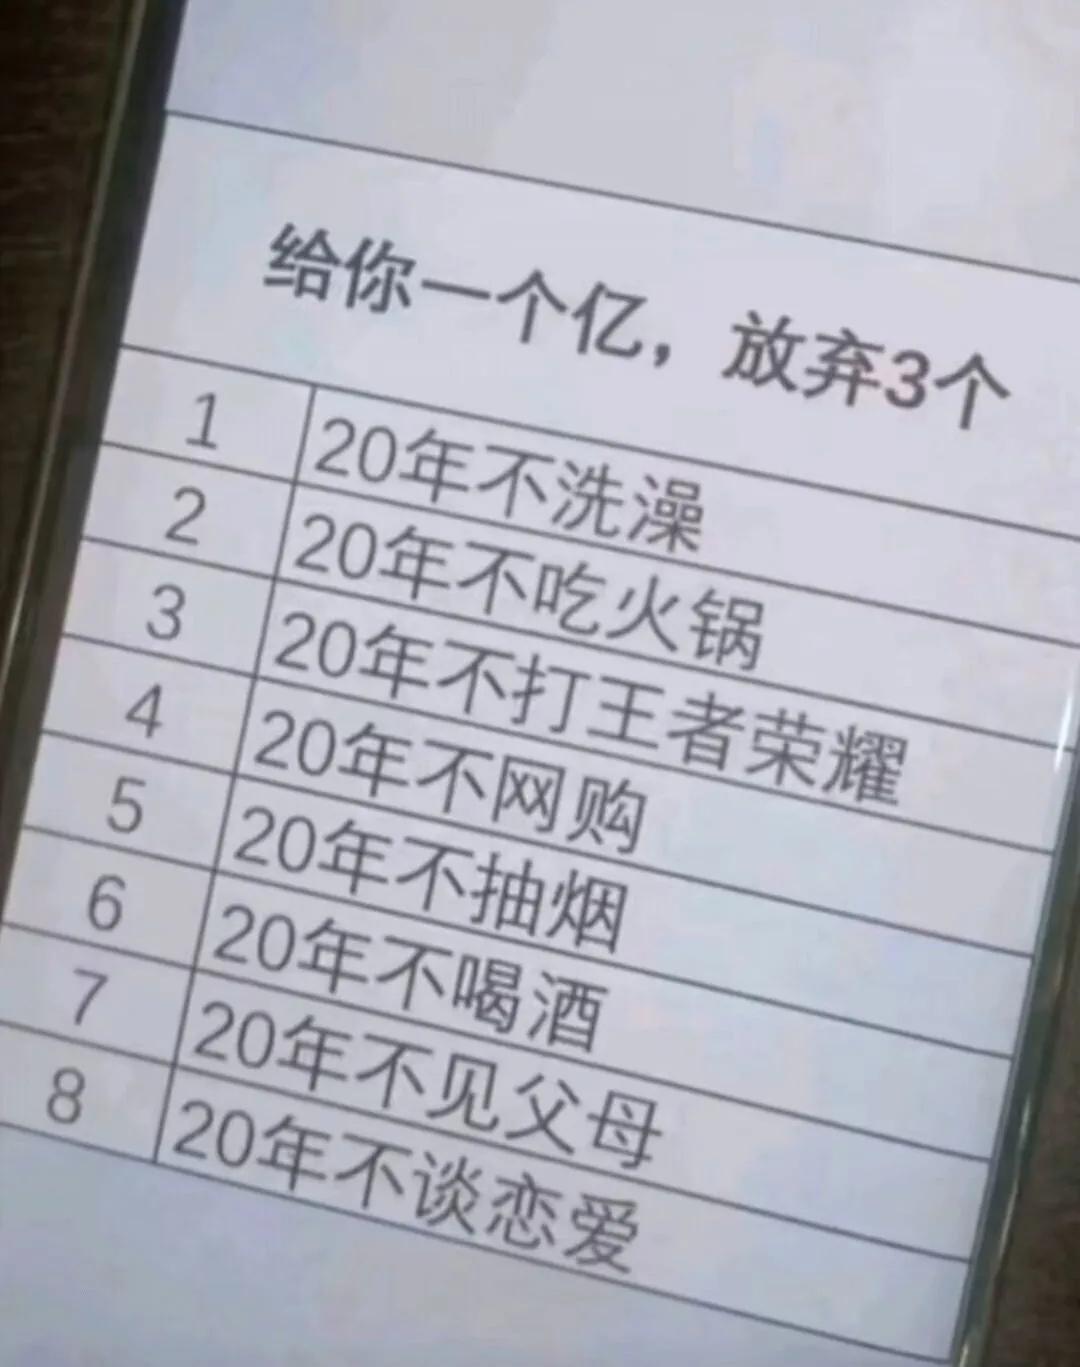 给你一个亿，放弃3个
1 20年不洗澡
2 20年不吃火锅
3 20年不打王者荣耀
4 20年不网购
5 20年不抽烟
6 20年不喝酒
7 20年不见父母
8 20年不谈恋爱